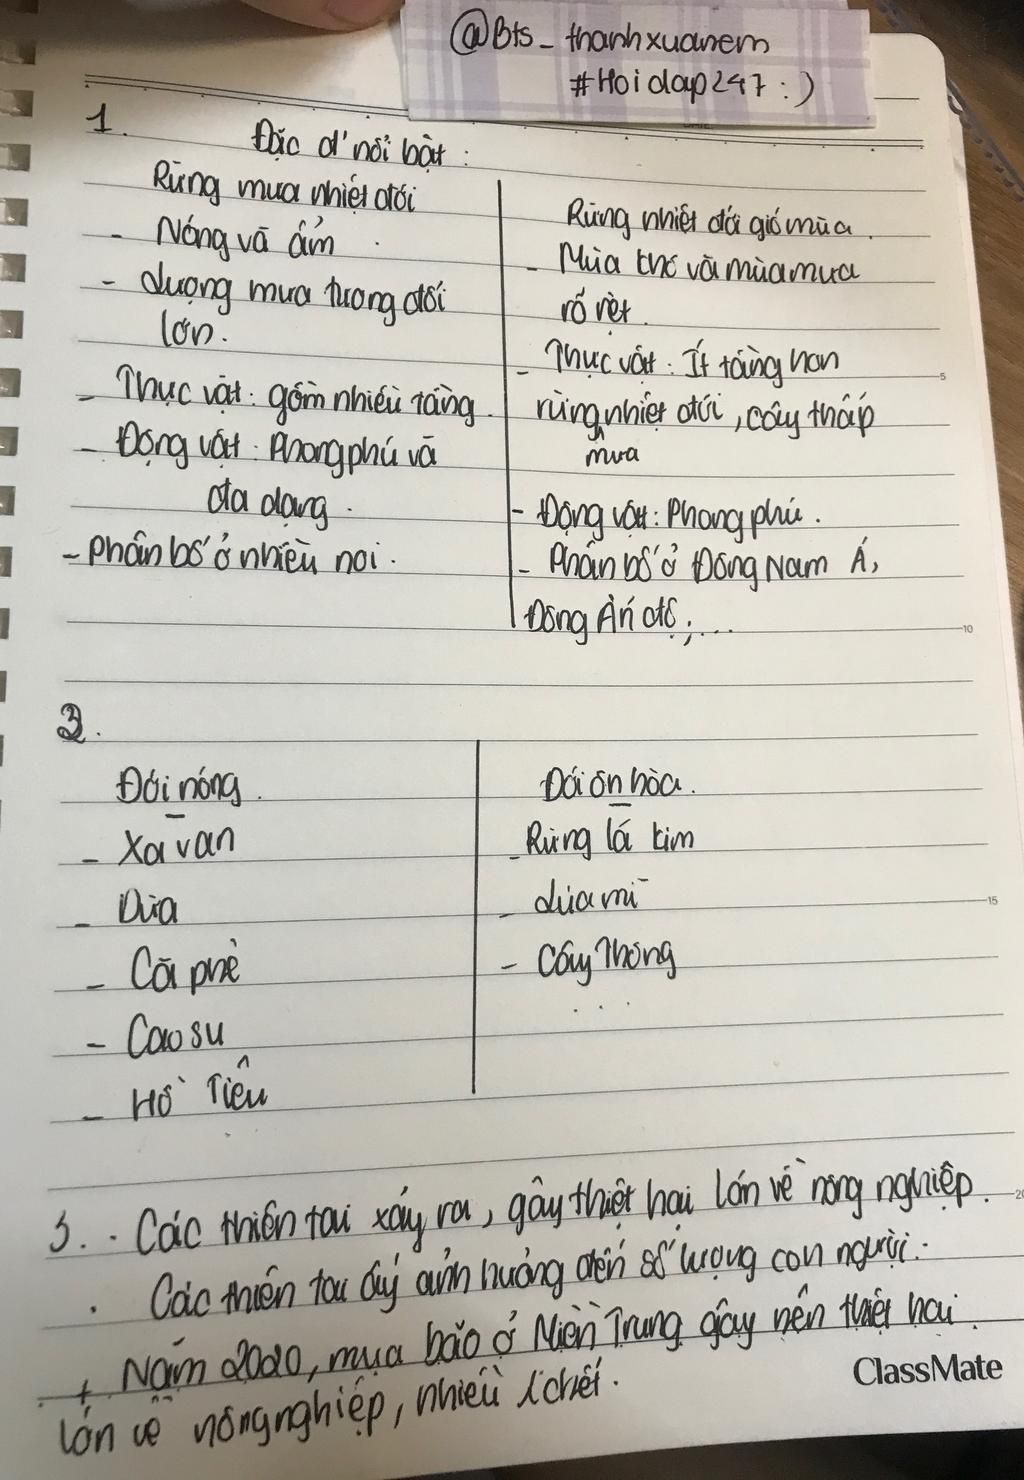 @Bts_thanhxuanem
#Hoidap247:)
1.
Đặc đ' nổi bật:
Rừng mưa nhiệt đới
- Nóng và ẩm.
- Lượng mưa tương đối
lớn.
- Thực vật: gồm nhiều tầng.
- Động vật: Phong phú và
đa dạng.
- Phân bố ở nhiều nơi.
Rừng nhiệt đới gió mùa.
- Mùa khô và mùa mưa
rõ rệt.
- Thực vật: Ít tầng hơn
rừng nhiệt đới, cây thấp
mưa
- Động vật: Phong phú.
- Phân bố ở Đông Nam Á,
Đông Ấn độ,...
2.
Đới nóng.
- Xa van
- Dừa
- Cà phê
- Cao su
- Hồ Tiêu
Đới ôn hòa.
- Rừng lá kim
- Lúa mì
- Cây Thông
...
3. . Các thiên tai xảy ra, gây thiệt hại lớn về nông nghiệp.
. Các thiên tai ấy ảnh hưởng đến số lượng con người.
+ Năm 2020, mưa bão ở Miền Trung gây nên thiệt hại
lớn về nông nghiệp, nhiều chết.
ClassMate
5
10
15
20